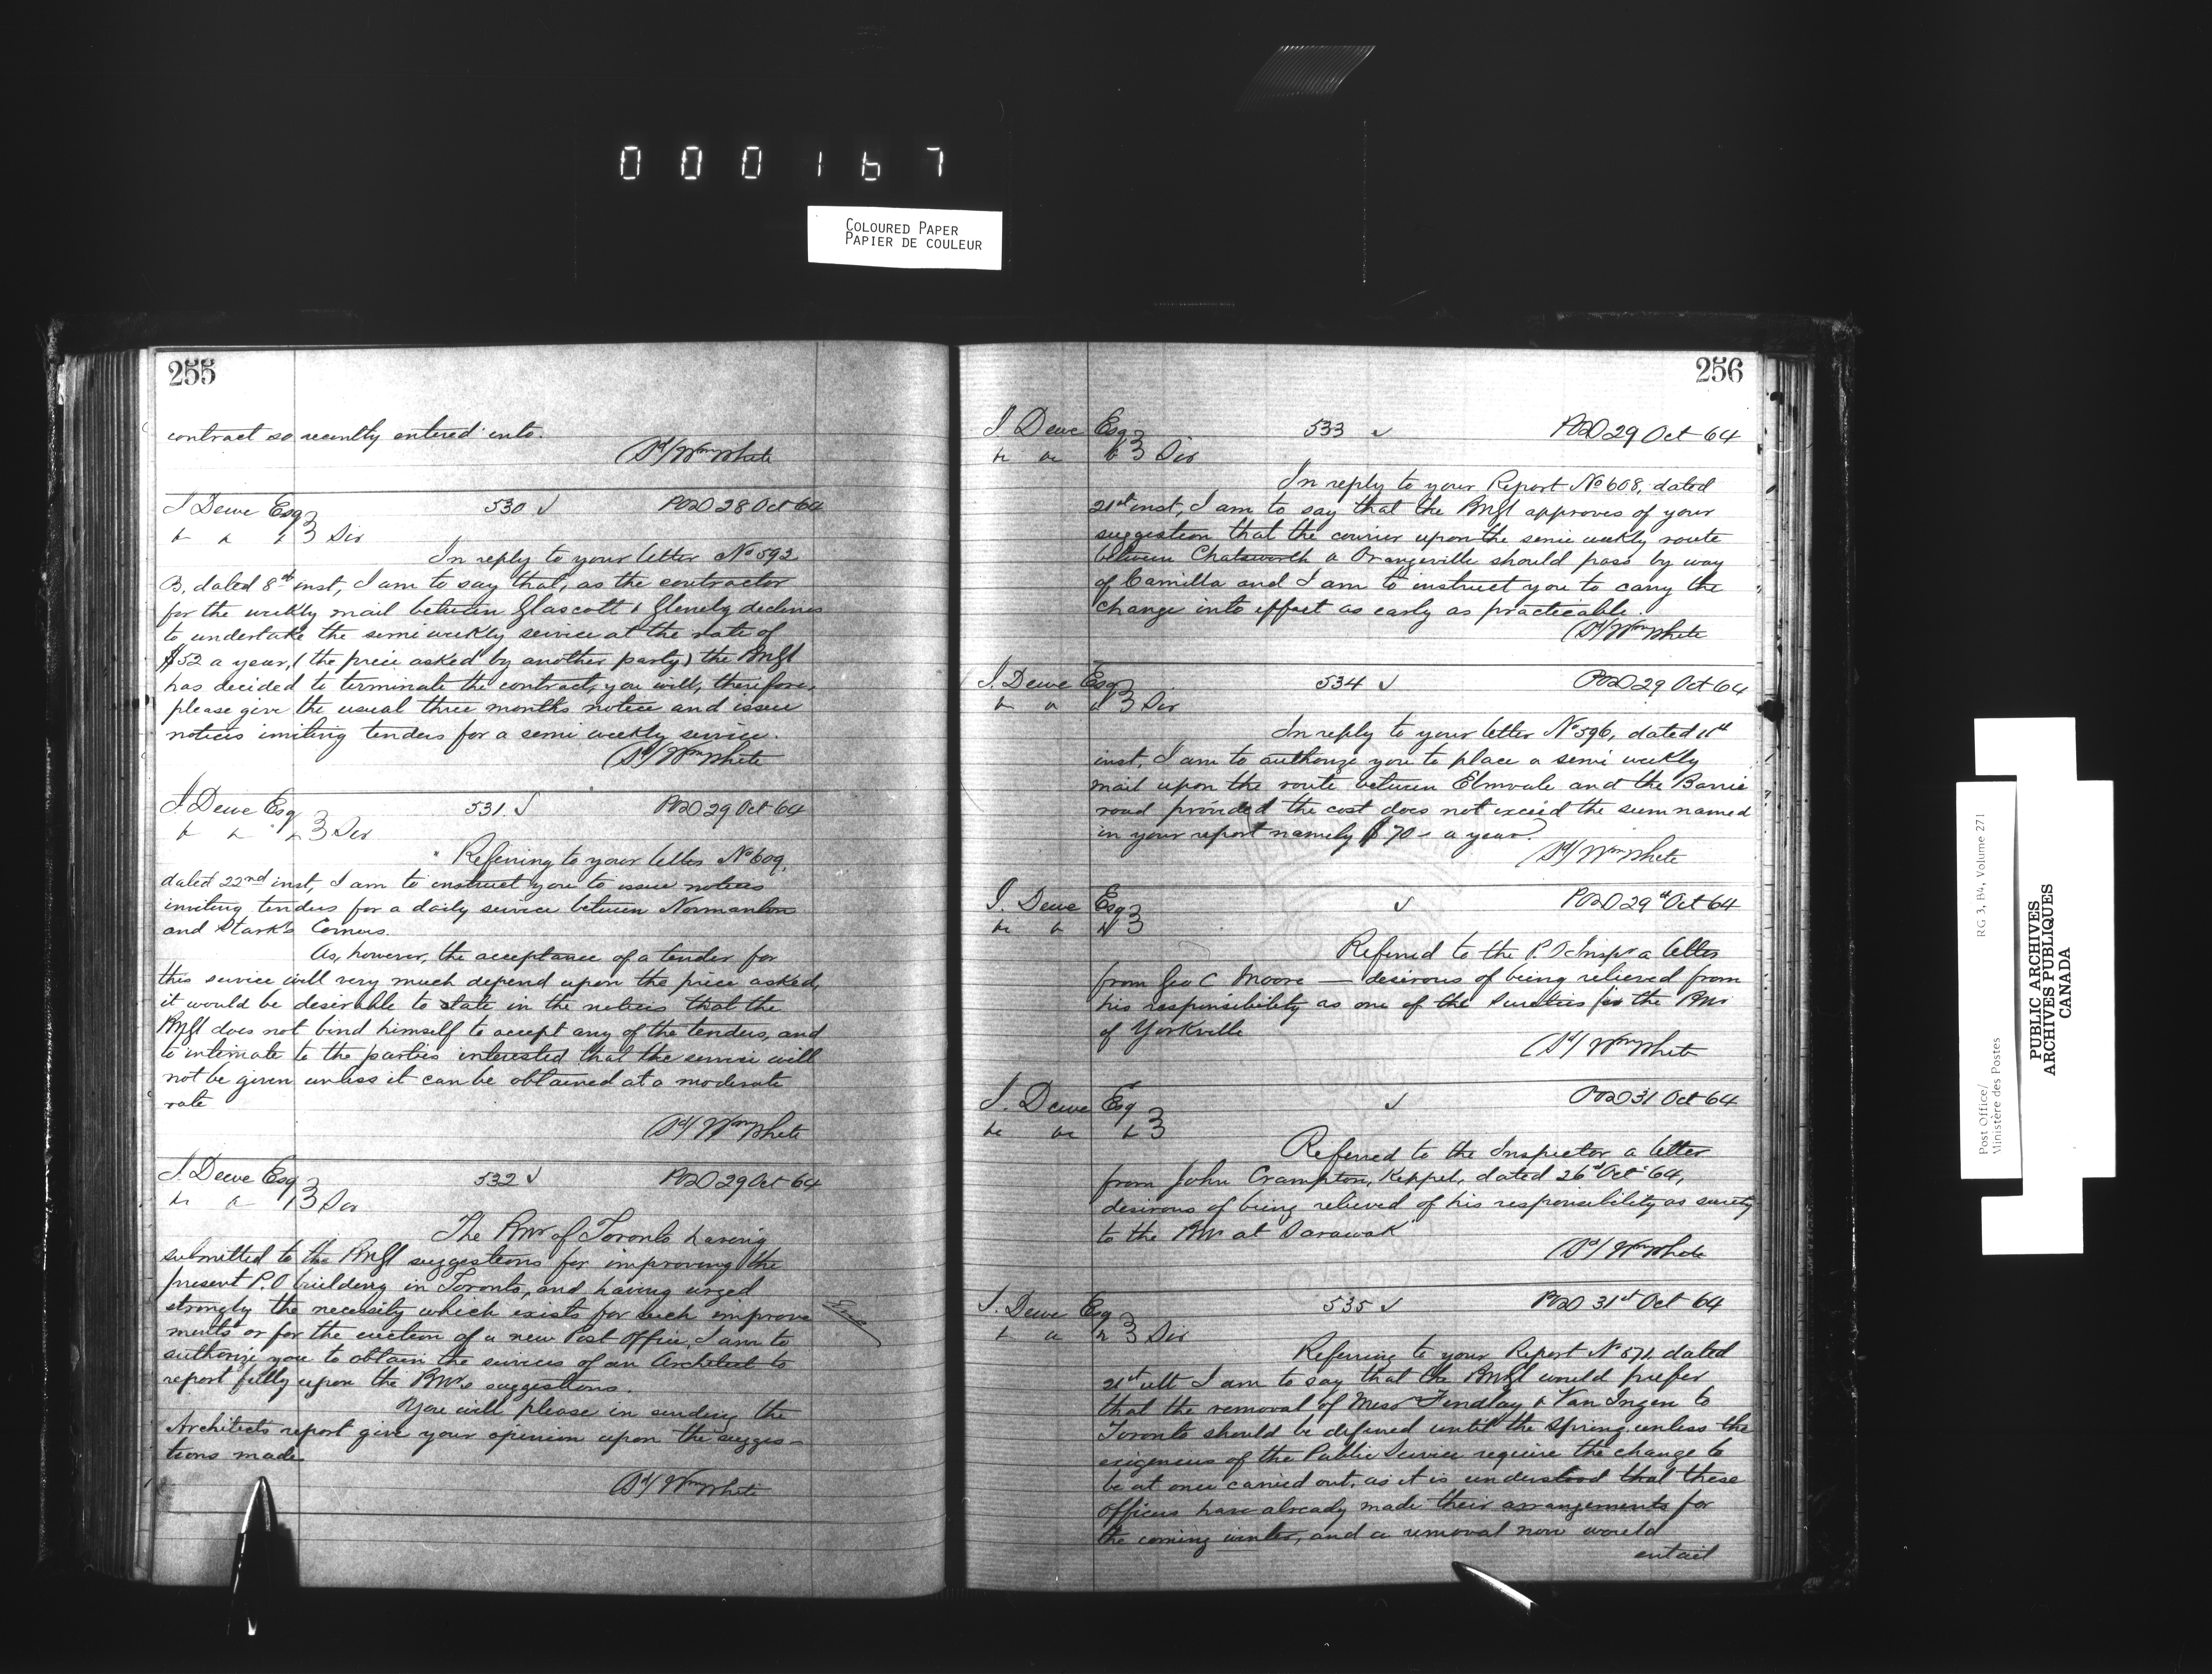 000167
COLOURED PAPER
PAPIER DE COULEUR
255
contract so recently entered into.
(Sd/ Wm White
J Dewe Esq 530 ✓ POD 28 Oct 64
& & & 3 Div
In reply to your letter No 592
B, dated 8th inst, I am to say that, as the contractor
for the weekly mail between Glascott & Glenelg declines
to undertake the semi weekly service at the rate of
$52 a year, (the price asked by another party) the PMGl
has decided to terminate the contract, you will, therefore,
please give the usual three months notice and issue
notices inviting tenders for a semi weekly service.
(Sd/ Wm White
J Dewe Esq 531 ✓ POD 29 Oct 64
& & & 3 Div
Referring to your letter No 609,
dated 22nd inst, I am to instruct you to issue notices
inviting tenders for a daily service between Normanton
and Stark's Corners.
As, however, the acceptance of a tender for
this service will very much depend upon the price asked,
it would be desirable to state in the notices that the
PMGl does not bind himself to accept any of the tenders, and
to intimate to the parties interested that the service will
not be given unless it can be obtained at a moderate
rate
(Sd/ Wm White
J Dewe Esq 532 ✓ POD 29 Oct 64
& & & 3 Div
The PMr of Toronto having
submitted to the PMGl suggestions for improving the
present P.O building in Toronto, and having urged
strongly the necessity which exists for such improve
ments or for the erection of a new Post Office, I am to
authorize you to obtain the services of an Architect to
report fully upon the PMr's suggestions.
You will please in sending the
Architects report give your opinion upon the sugges-
tions made
(Sd/ Wm White
256
J Dewe Esq 533 ✓ POD 29 Oct 64
& & & 3 Div
In reply to your Report No 608, dated
21st inst, I am to say that the PMGl approves of your
suggestion that the courier upon the semi weekly route
between Chatsworth & Orangeville should pass by way
of Camilla and I am to instruct you to carry the
change into effect as early as practicable.
(Sd/ Wm White
J. Dewe Esq 534 ✓ POD 29 Oct 64
& & & 3 Div
In reply to your letter No 596, dated 11th
inst, I am to authorize you to place a semi weekly
mail upon the route between Elmvale and the Barrie
road provided the cost does not exceed the sum named
in your report namely $70 - a year.
(Sd/ Wm White
J. Dewe Esq ✓ POD 29th Oct 64
& & & 3
Referred to the P. O Inspr a letter
from Geo C Moore — desirous of being relieved from
his responsibility as one of the Sureties for the PMr
of Yorkville
(Sd/ Wm White
J. Dewe Esq ✓ POD 31 Oct 64
& & & 3
Referred to the Inspector a letter
from John Crampton, Keppel, dated 26th Oct 64,
desirous of being relieved of his responsibility as surety
to the PMr at Sarawak
(Sd/ Wm White
J. Dewe Esq 535 ✓ POD 31st Oct 64
& & & 3 Div
Referring to your Report No 571, dated
21st ult I am to say that the PMGl would prefer
that the removal of Messr Findlay & Van Ingen to
Toronto should be defered until the Spring, unless the
exigencies of the Public Service require the change to
be at once carried out, as it is understood that these
officers have already made their arrangements for
the coming winter, and a removal now would
entail
Post Office/
Ministère des Postes
RG 3, B4, Volume 271
PUBLIC ARCHIVES
ARCHIVES PUBLIQUES
CANADA